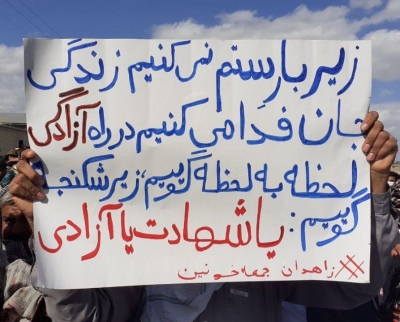 زیر بار ستم نمی کنیم زندگی
جان فدا می کنیم در راه آزادگی
لحظه به لحظه گوییم، زیر شکنجه
گوییم: یا شهادت یا آزادی
#زاهدان جمعه خونین